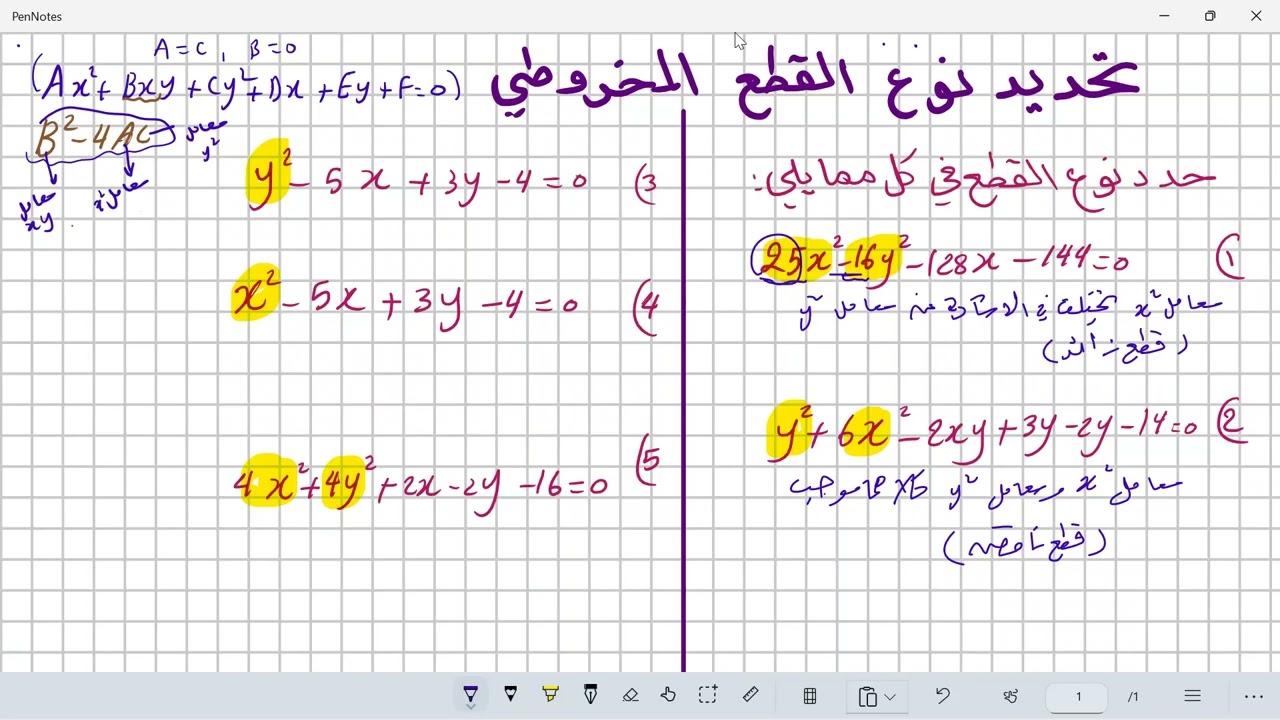 PenNotes
تحديد نوع القطع المخروطي
A = C , B = 0
(Ax² + Bxy + Cy² + Dx + Ey + F = 0)
B² - 4AC
معامل y²
معامل x²
معامل xy
حدد نوع القطع في كل مما يلي:
1) 25x² - 16y² - 128x - 144 = 0
معامل x² تختلف في الاشارة عن معامل y²
(قطع زائد)
2) y² + 6x² - 2xy + 3y - 2y - 14 = 0
معامل x² ومعامل y² كلاهما موجب
(قطع ناقص)
3) y² - 5x + 3y - 4 = 0
4) x² - 5x + 3y - 4 = 0
5) 4x² + 4y² + 2x - 2y - 16 = 0
1 /1